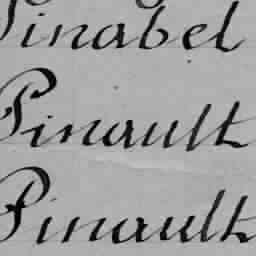 Pinabel
Pinault
Pinault